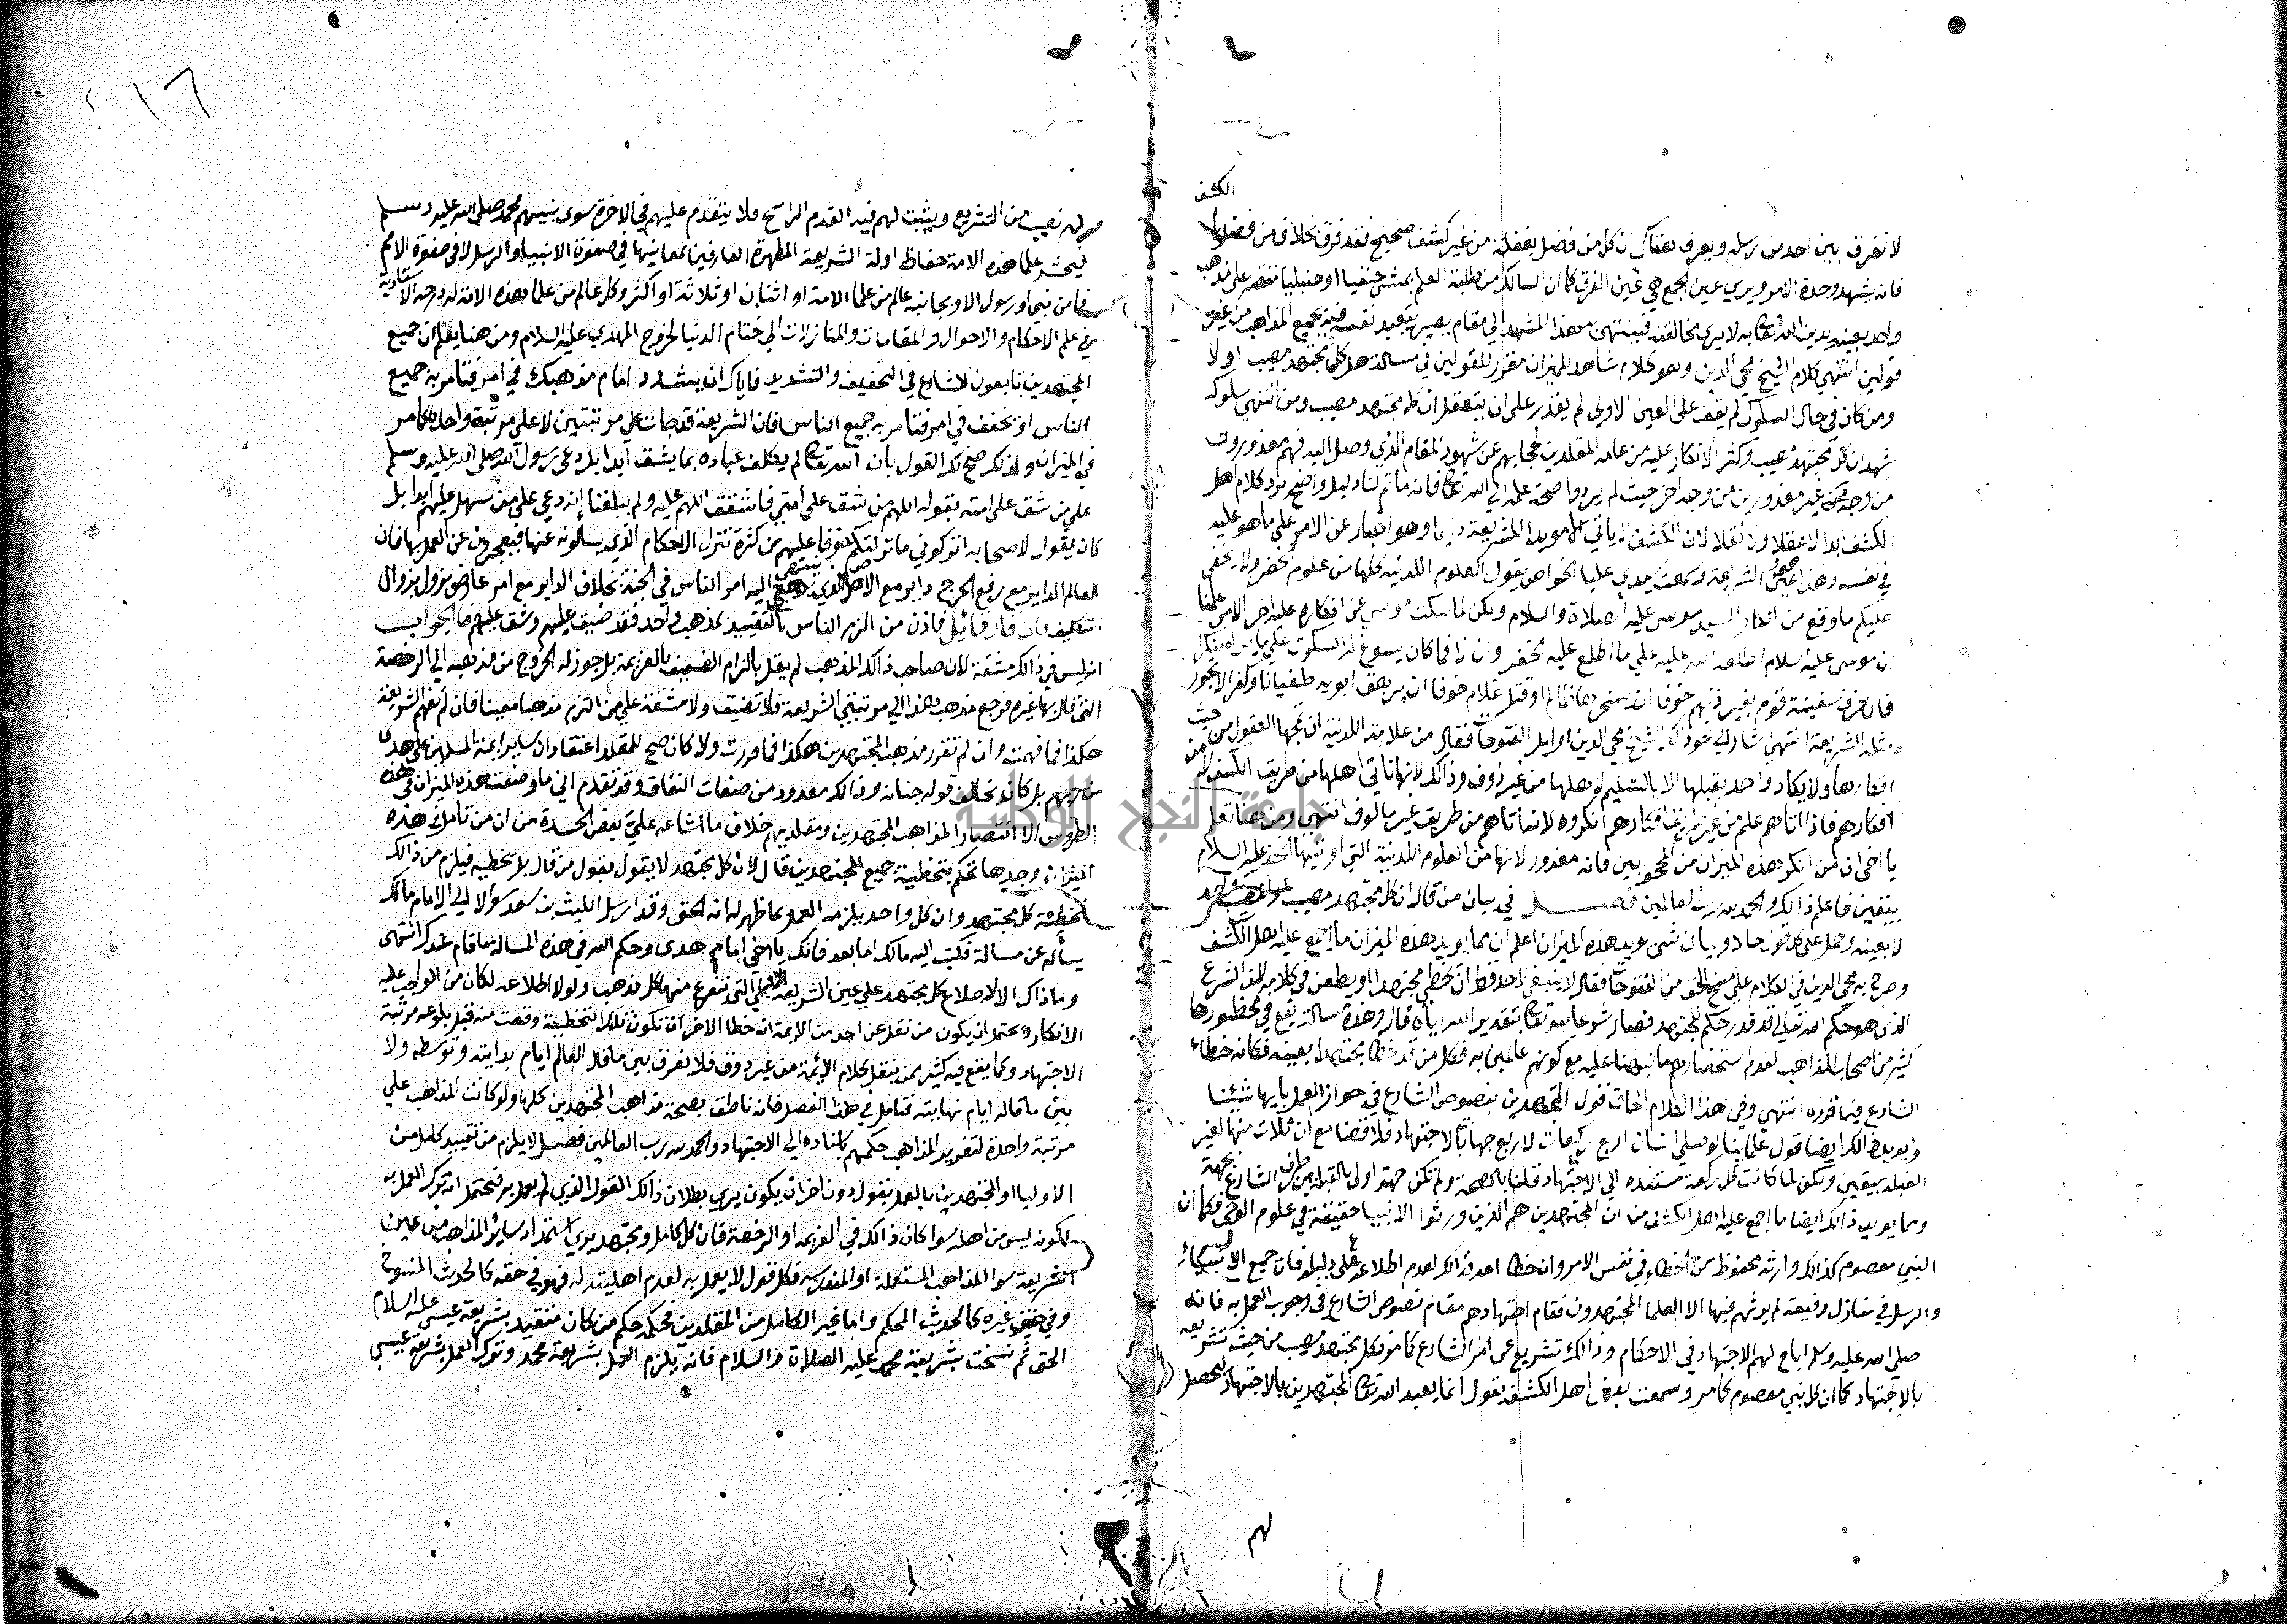 الكشف
لا نفرق بين احد من رسله ويعرف هناك ان كل من فضل بعقله من غير كشف صحيح فقد فرق بخلاف من فضل
فانه يشهد وحدة الامر ويرى عين الجمع هي عين الفرق كما ان السالك من طلبة العلم يمشي حنفيا او حنبليا مقتصر على مذهب
واحد بعينه يدين الله تعالى به لا يرى مخالفته فينتهي به هذا المشهد الى مقام يصير يتعبد نفسه فيه بجميع المذاهب من غير
فرقان انتهى كلام الشيخ محي الدين وهو كلام شاهد للميزان مقرر للقولين في مسالة هل كل مجتهد مصيب اولا
ومن كان في حال السلوك لم يقف على العين الاولى لم يقدر على ان يتعقل ان كل مجتهد مصيب ومن انتهى سلوكه
شهد ان كل مجتهد مصيب وكثر الانكار عليه من عامة المقلدين لحجابهم عن شهود المقام الذي وصل اليه فهم معذورون
من وجه غير معذورين من وجه اخر حيث لم يردوا صحة علمه الى الله تعالى فانه ما ثم لنا دليل واضح يرد كلام اهل
الكشف ابدا لا عقلا ولا نقلا لان الكشف لا ياتي الا مويدا للشريعة دايما وهو اخبار عن الامر على ما هو عليه
في نفسه وهذا عين الشريعة وسمعت سيدي عليا الخواص يقول العلوم اللدنية كلها من علوم الخضر ولا يخفى
عليكم ما وقع من انكار السيد موسى عليه الصلاة والسلام ولكن لما سكت موسى عن انكاره عليه اخر الامر علمنا
ان موسى عليه السلام اطلعه الله عليه على ما اطلع عليه الخضر وان لا فما كان يسوغ له السكوت على ما يراه
فان خرق سفينة قوم بغير اذنهم خوفا ان يسخرها ظالم او قتل غلام خوفا ان يرهق ابويه طغيانا وكفرا لا يجوز
مثله الشريعة انتهى اشار الى نحو ذلك الشيخ محي الدين اوايل الفتوحات فقال من علامة اللدنية ان تمجها العقول من حيث
افكارها ولا يكاد واحد يقبلها الا بالتسليم لاهلها من غير ذوق وذالك لانها تاتي اهلها من طريق الكشف لا من
افكارهم فاذا اتاهم علم من غير طريق افكارهم انكروه لانه اتاهم من طريق غير مالوف انتهى ومن هنا تعلم
يا اخي ان من انكر هذه الميزان من المحجوبين فانه معذور لانها من العلوم اللدنية التي اوتيها الخضر عليه السلام
بيقين فاعلم ذالك والحمد لله رب العالمين فصل في بيان من قال ان كل مجتهد مصيب او المصيب واحد
لا بعينه وحمل على كل قول حال وبيان شي يويد هذه الميزان اعلم ان مما يويد هذه الميزان ما اجمع عليه اهل الكشف
وصرح به محي الدين في الكلام على مسح الخف من الفتوحات فقال لا ينبغي لاحد قط ان يخطي مجتهدا او يطعن في كلامه لان الشرع
الذي هو حكم الله تعالى قد قرر حكم المجتهد فصار شرعا لله تعالى بتقدير الله اياه قال وهذه مسالة يقع في محظورها
كثير من اصحاب المذاهب لعدم استحضارهم ما نبهنا عليه مع كونهم عالمين به فكل من قد خطا مجتهدا بعينه فكانه خطاء
الشارع فيما قرره انتهى وفي هذا الكلام الحاق قول المجتهدين بنصوص الشارع في جواز العمل بايها شيئنا
ويويد ذالك ايضا قول علمائنا لو صلى انسان اربع ركعات لاربع جهات بالاجتهاد فلا قضا مع ان ثلاث منها لغير
القبلة بيقين ولكن لما كانت كل ركعة مستنده الى الاجتهاد قلنا بالصحة ولم تكن جهة اولى بالقبلة من جهة
ومما يويد ذالك ايضا ما اجمع عليه اهل الكشف من ان المجتهدين هم الذين ورثوا الانبيا حقيقة في علوم الوحي فكما ان
النبي معصوم كذالك وارثه محفوظ من الخطاء في نفس الامر وان خطا احد فذالك لعدم اطلاعه على دليله فان جميع الانبياء
والرسل في منازل رفيعة لم يرثهم فيها الا العلما المجتهدون فقام اجتهادهم مقام نصوص الشارع في وجوب العمل به فانه
صلى الله عليه وسلم اباح لهم الاجتهاد في الاحكام وذالك تشريع عن امر الشارع كما مر فكل مجتهد مصيب من حيث تشريعه
بالاجتهاد كما ان كل نبي معصوم كما مر وسمعت بعض اهل الكشف يقول انما يعبد الله تعالى المجتهدين بالاجتهاد ليحصل
لهم
١٦
لهم نصيب من التشريع ويثبت لهم فيه القدم الراسخ فلا يتقدم عليهم في الاخرة سوى نبيهم محمد صلى الله عليه وسلم
فيحشر علما هذه الامة حفاظ ادلة الشريعة المطهرة العارفين بمعانيها في صفوة الانبيا والرسل لا في صفوة الامم
فما من نبي او رسول الا وبجانبه عالم من علما الامة او اثنان او ثلاثة او اكثر وكل عالم من علما هذه الامة له درجة الاستاذية
في علم الاحكام والاحوال والمقامات والمنازلات الى ختام الدنيا لخروج المهدي عليه السلام ومن هنا يعلم ان جميع
المجتهدين تابعون للشارع في التخفيف والتشديد فاياك ان يشدد امام مذهبك في امر فتامر به جميع
الناس او يخفف في امر فتامر به جميع الناس فان الشريعة قد جات على مرتبتين لا على مرتبة واحدة كما مر
في الميزان ولذلك صح لك القول بان الله تعالى لم يكلف عباده بما يشق ابدا بل دعى رسول الله صلى الله عليه وسلم
على من شق على امته بقوله اللهم من شق على امتي فاشقق اللهم عليه ولم يبلغنا انه دعى على من سهل عليهم ابدا بل
كان يقول لاصحابه اتركوني ما تركتكم خوفا عليهم من كثرة تنزل الاحكام الذي يسالونه عنها فيعجزون عن العمل بها فان
العالم الداير مع رفع الحرج داير مع الاصل الذي ينتهي اليه امر الناس في الجنة بخلاف الداير مع امر عارض يزول بزوال
التكليف فان قال قائل فاذن من الزم الناس بالتقييد بمذهب واحد فقد ضيق عليهم وشق عليهم فالجواب
انه ليس في ذالك مشقة لان صاحب ذالك المذهب لم يقل بالزام الضعيف بالعزيمة بل جوز له الخروج من مذهبه الى الرخصة
التي قال بها غيره فرجع مذهب هذا الى مرتبتي الشريعة فلا تضيق ولا مشقة على من التزم مذهبا معينا فان لم تفهم الشريعة
هكذا فما فهمت وان لم تقرر مذهب المجتهدين هكذا فما ورثت ولا كان صح للمقلد اعتقاد ان ساير ايمة المسلمين على هدى
من ربهم بل كان يخالف قوله جنانه وذالك معدود من صفات النفاق وقد تقدم اني ما وضعت هذه الميزان في هذه
الطروس الا انتصارا لمذاهب المجتهدين ومقلديهم خلاف ما اشاعه علي بعض الحسدة من ان من تامل في هذه
الميزان وجدها تحكم بتخطية جميع المجتهدين قال لان كل مجتهد لا يقول بقول من قال بل يخطيه فيلزم من ذالك
تخطئة كل مجتهد وان كل واحد يلزمه العمل بما ظهر له انه الحق وقد ارسل الليث بن سعد سوالا الى الامام مالك
يسأله عن مسالة فكتب اليه مالك اما بعد فانك يا اخي امام هدى وحكم الله في هذه المسالة ما قام عندك انتهى
وما ذاك الا لاطلاع كل مجتهد على عين الشريعة التي تتفرع منها كل مذهب ولولا اطلاعه لكان من الواجب عليه
الانكار ويحتمل ان يكون من نقل عن احد من الايمة انه خطا الاخر ان تكون تلك التخطيئة وقعت منه قبل بلوغه مرتبة
الاجتهاد وكما يقع فيه كثير ممن ينقل كلام الائمة من غير ذوق فلا يفرق بين ما قاله العالم ايام بدايته وتوسطه ولا
بين ما قاله ايام نهايته فتامل في هذا الفصل فانه ناطق بصحة مذاهب المجتهدين كلها ولو كانت المذاهب على
مرتبة واحدة لتقرير المذاهب حكمهم كاسناده الى الاجتهاد والحمد لله رب العالمين فصل لا يلزم من تقييد كامل من
الاوليا او المجتهدين بالعمل بقول دون اخر ان يكون يرى بطلان ذالك القول الذي لم يعمل به فيحتمل انه ترك العمل به
لكونه ليس من اهله سوا كان ذالك في العزيمة او الرخصة فان كل كامل ومجتهد يرى استمداد سائر المذاهب من عين
الشريعة سوا المذاهب المستعملة او المندرسة فكل قول لا يعمل به لعدم اهليته له فهو في حقه كالحديث المنسوخ
وفي حق غيره كالحديث المحكم واما غير الكامل من المقلدين فحكمه حكم من كان متقيد بشريعة عيسى عليه السلام
الحق ثم نسخت بشريعة محمد عليه الصلاة والسلام فانه يلزم العمل بشريعة محمد وترك العمل بشريعة عيسى
جامعة النجاح الوطنية